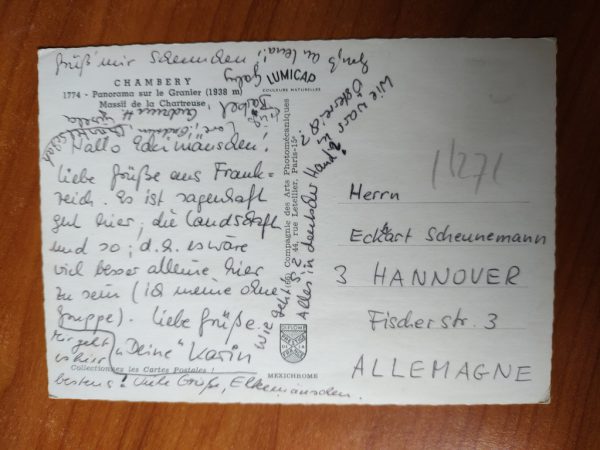 Grüß' mir Scheunchen!
Gruß an Lena!
Gaby
CHAMBERY
1774 - Panorama sur le Granier (1938 m)
Massif de la Chartreuse
LUMICAP
COULEURS NATURELLES
Wie war's in
Österreich?
Hallo Eckimänschen!
Liebe Grüße aus Frank-
reich. Es ist sagenhaft
gut hier, die Landschaft
und so; d.h. es wäre
viel besser alleine hier
zu sein (ich meine ohne
Gruppe). Liebe Grüße
"Deine" Karin
Mir geht
es hier
bestens! Viele Grüße, Elkemänschen.
Collectionnez les Cartes Postales !
Wie geht's?
Alles in deutscher Hand?
Compagnie des Arts Photomécaniques
44, rue Letellier, Paris-15e
MEXICHROME
1/271
Herrn
Eckart Scheunemann
3 HANNOVER
Fischerstr. 3
ALLEMAGNE